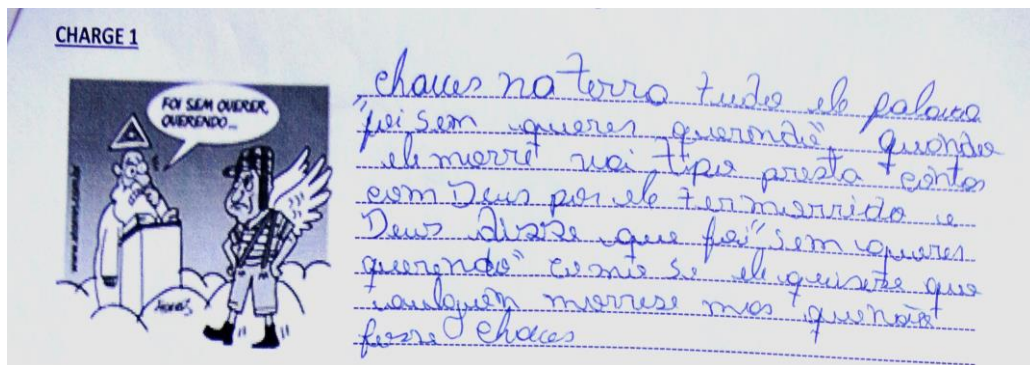 CHARGE 1
FOI SEM QUERER,
QUERENDO...
chaves na terra tudo ele falava
"foi sem queres querendo", quando
ele morre vai tipo presta contas
com Deus por ele ter morrido e
Deus disse que foi "sem queres
querendo" como se ele quisese que
alguém morrese mas que não
fosse chaves